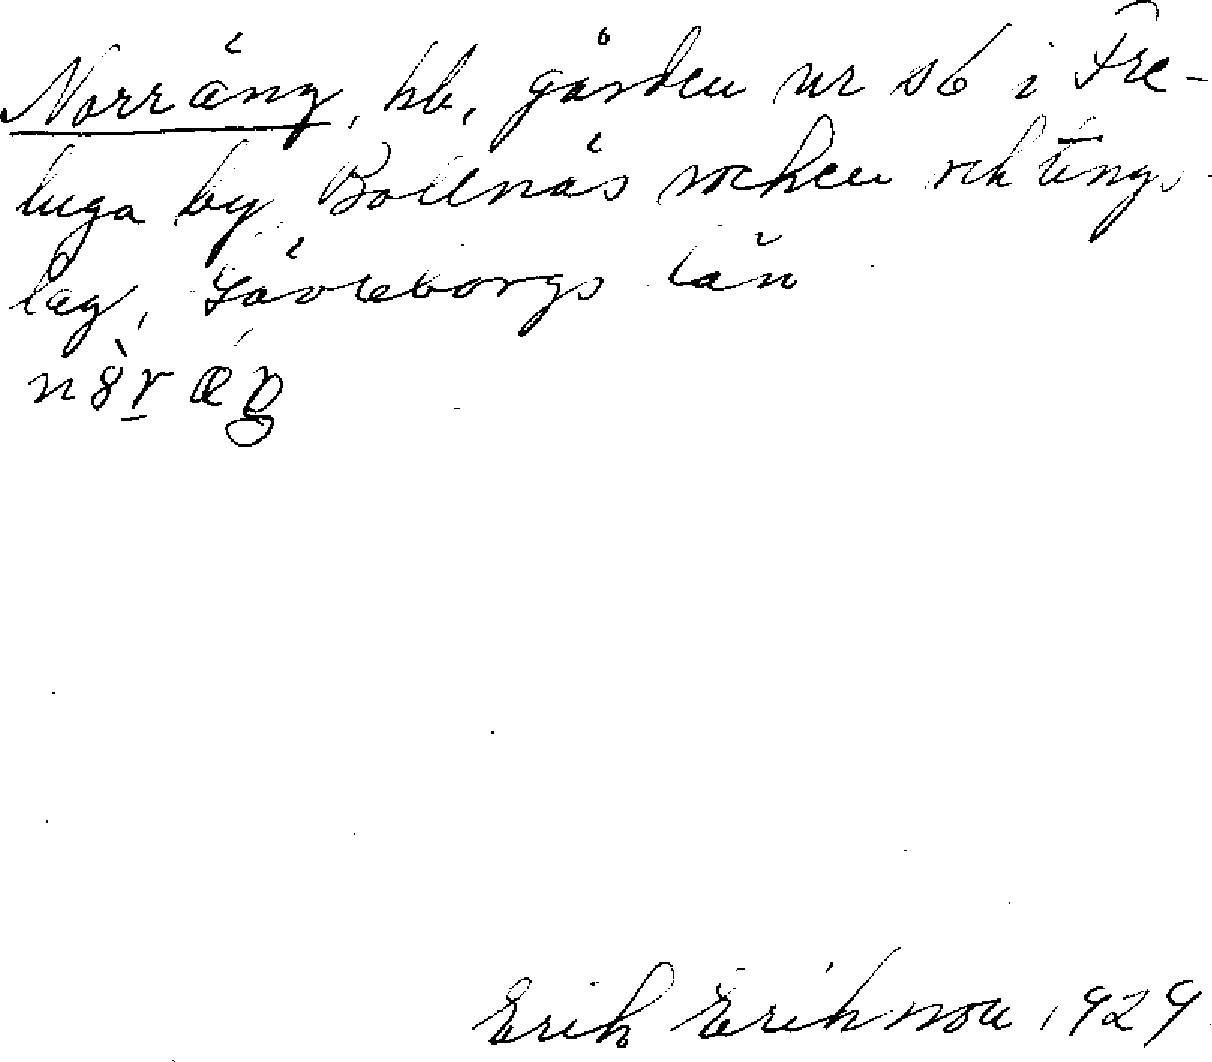 Norräng, hb, gården nr 16 i Fre-
luga by, Bollnäs socken och tings-
lag, Gävleborgs län
Erik Eriksson 1929